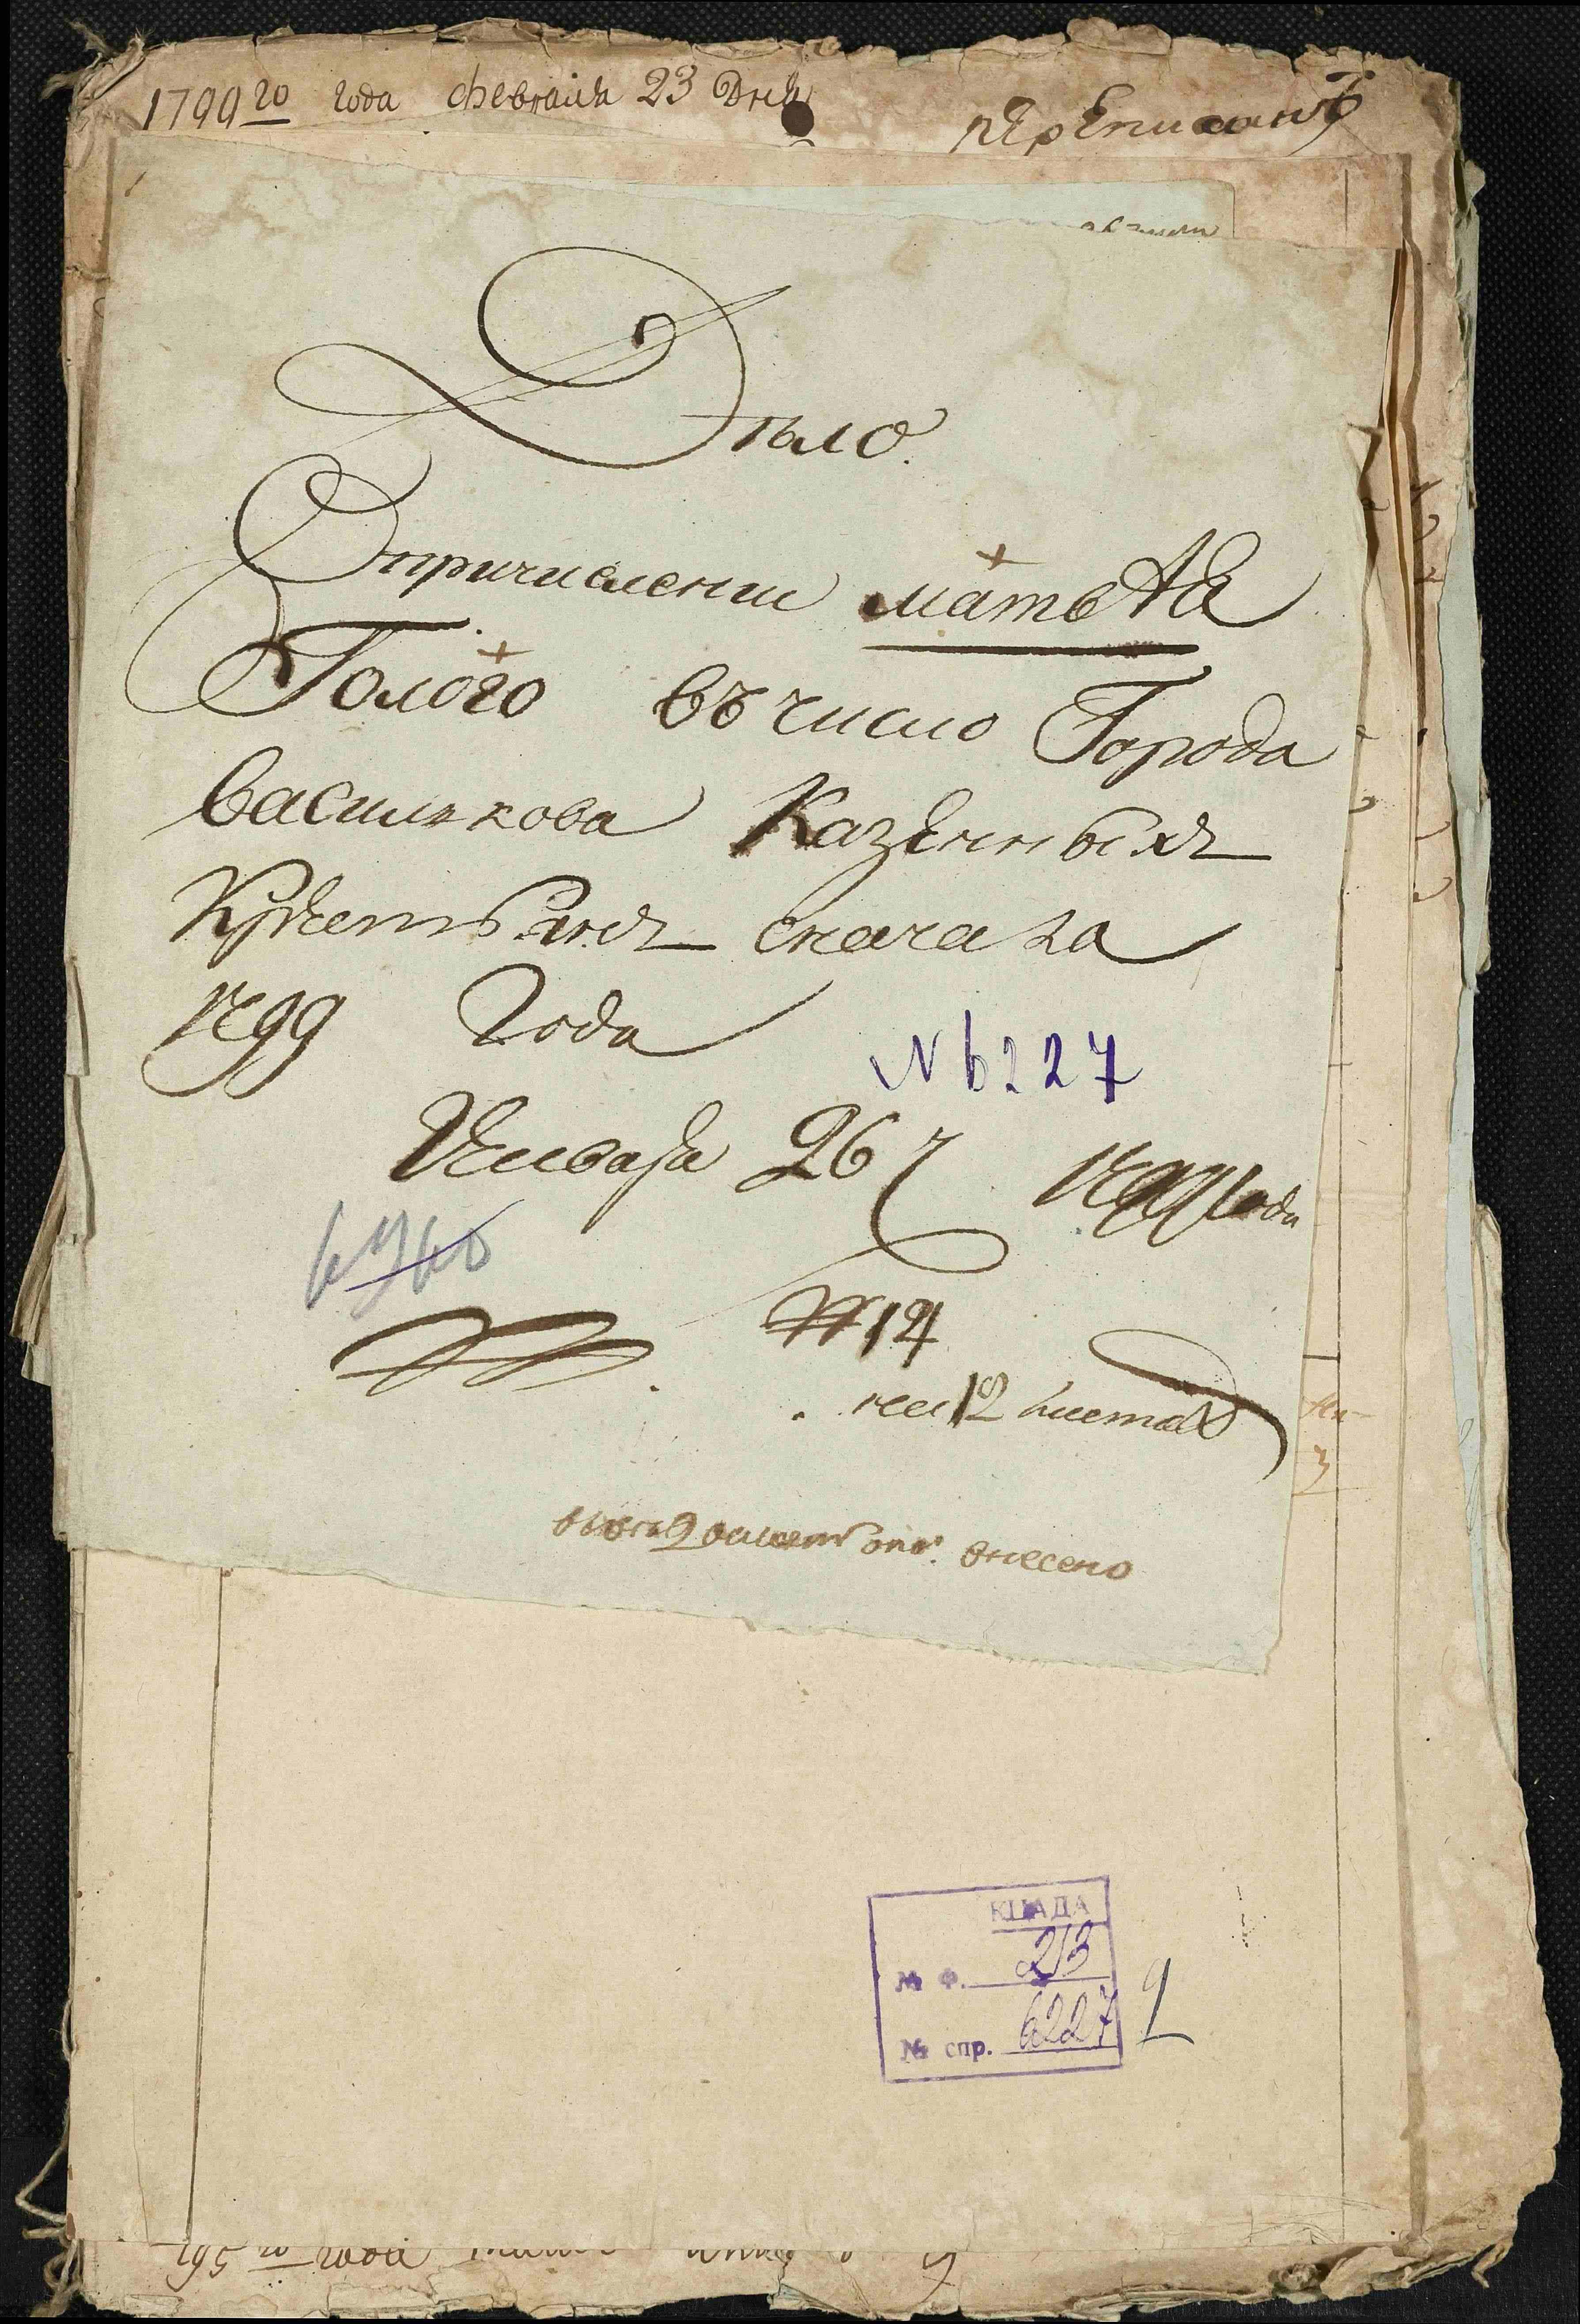 1799го года февраля 23 Дня
Дѣло.
О причислении матвея
Голого въ число Города
василкова Казенныхъ
Крестьянъ сначала
1799 года
N 6227
Генваря 26 ч 1799 года
6960
№ 14
на 12 листах
внесено
КЦАДА
№ Ф. 213
№ спр. 6227
1
195го года